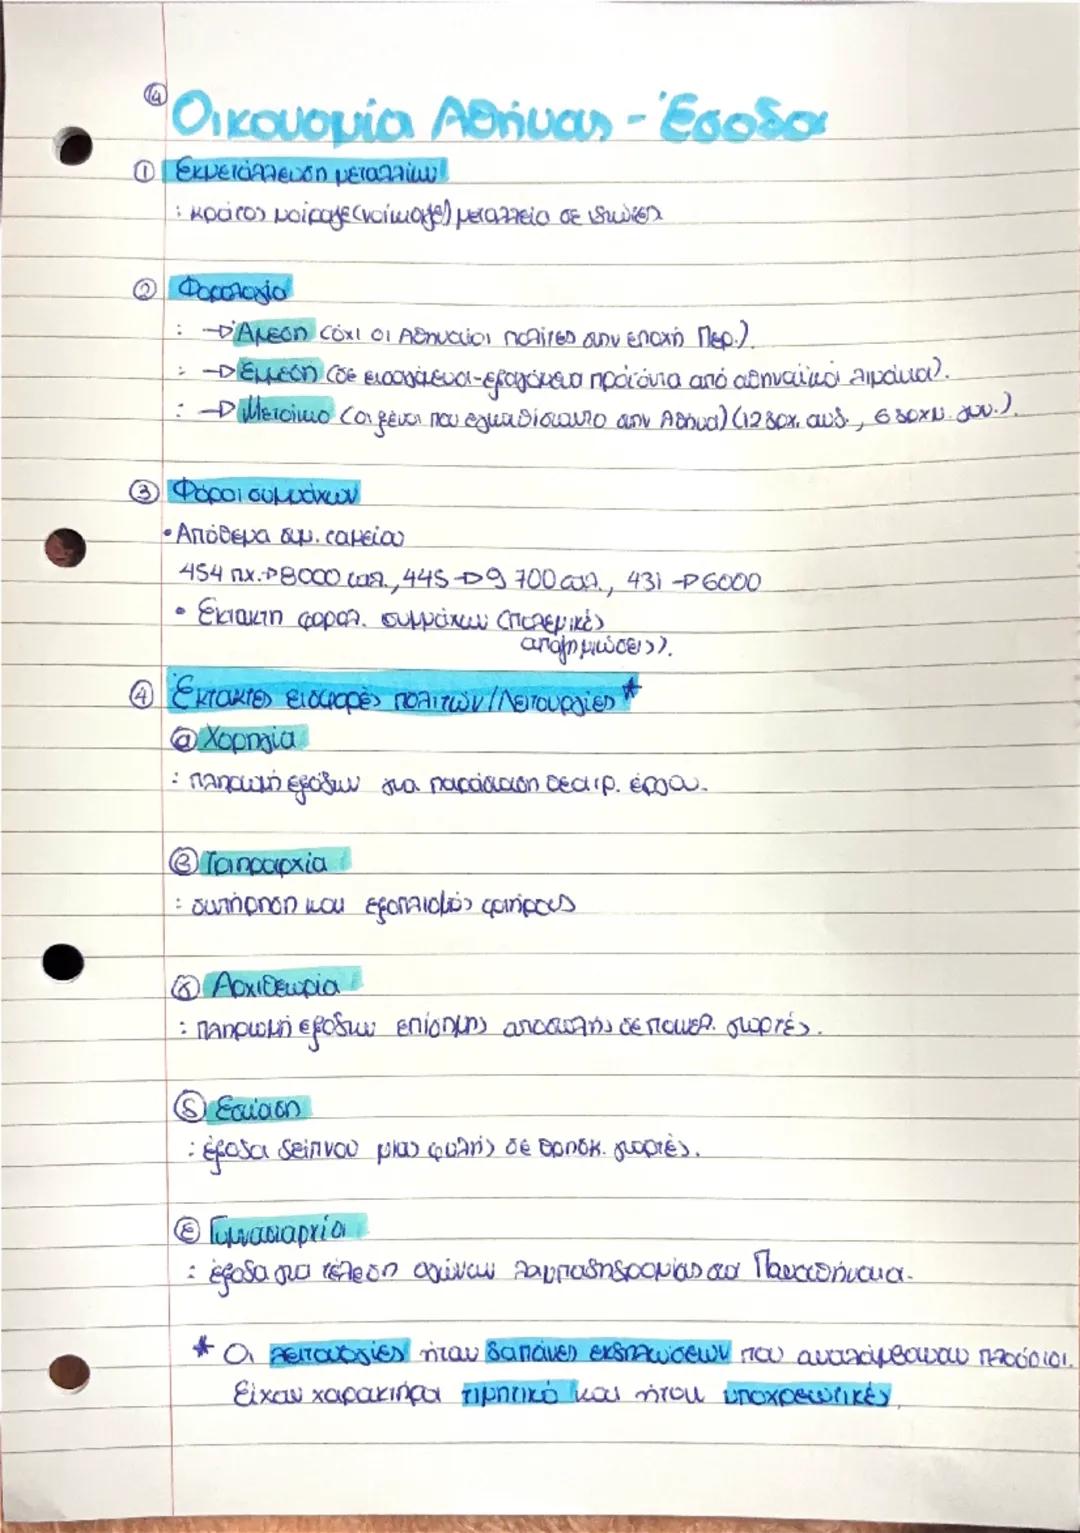 ④ Οικονομία Αθήνας - Έσοδα
① Εκμετάλλευση μεταλλίων
: κράτος μοίραζε (νοίκιαζε) μεταλλεία σε ιδιώτες
② Φορολογία
: → Άμεση (όχι οι Αθηναίοι πολίτες στην εποχή Περ.).
: → Έμμεση (σε εισαγόμενα-εξαγόμενα προϊόντα από αθηναϊκά λιμάνια).
: → Μετοίκιο (οι ξένοι που εγκαθίσταντο στην Αθήνα) (12 δρχ. ανδ., 6 δρχμ. γυν.).
③ Φόροι συμμάχων
• Απόθεμα συμ. ταμείου
454 πχ. → 8000 ταλ., 445 → 9 700 ταλ., 431 → 6000
• Έκτακτη φορολ. συμμάχων (πολεμικές
αποζημιώσεις).
④ Έκτακτες εισφορές πολιτών/Λειτουργίες *
ⓐ Χορηγία
: πληρωμή εξόδων για παράσταση θεατρ. έργου.
ⓑ Τριηραρχία
: συτήρηση και εξοπλισμός τριήρους
ⓖ Αρχιθεωρία
: πληρωμή εξόδων επίσημης αποστολής σε πανελ. γιορτές.
ⓓ Εστίαση
: έξοδα δείπνου μιας φυλής σε θρησκ. γιορτές.
ⓔ Γυμνασιαρχία
: έξοδα για τέλεση αγώνων λαμπαδηδρομίας στα Παναθήναια.
* Οι λειτουργίες ήταν δαπάνες εκδηλώσεων που αναλάμβαναν πλούσιοι.
Είχαν χαρακτήρα τιμητικό και ήταν υποχρεωτικές.